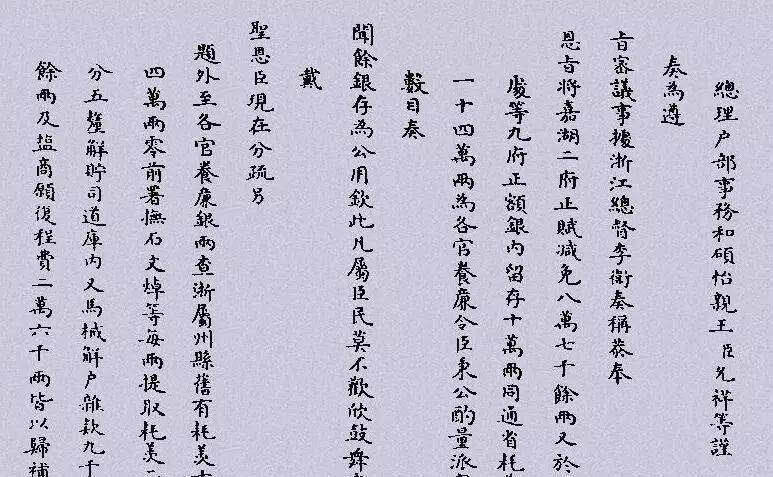 總理户部事務和碩怡親王臣允祥等謹
奏為遵
旨審議事據浙江總督李衛奏稱恭奉
恩旨將嘉湖二府正賦減免八萬七千餘兩又於
處等九府正額銀内留存十萬兩同通省耗
一十四萬兩為各官養廉令臣秉公酌量派
數目奏
聞餘銀存為公用欽此凡屬臣民莫不歡欣鼓舞
戴
聖恩臣現在分疏另
題外至各官養廉銀兩查浙屬州縣舊有耗羨
四萬兩零前署撫石文焯等每兩提取耗羨
分五釐解貯司道庫内又馬械解户雜款九千
餘兩及塩商願復程費二萬六千兩皆以歸補